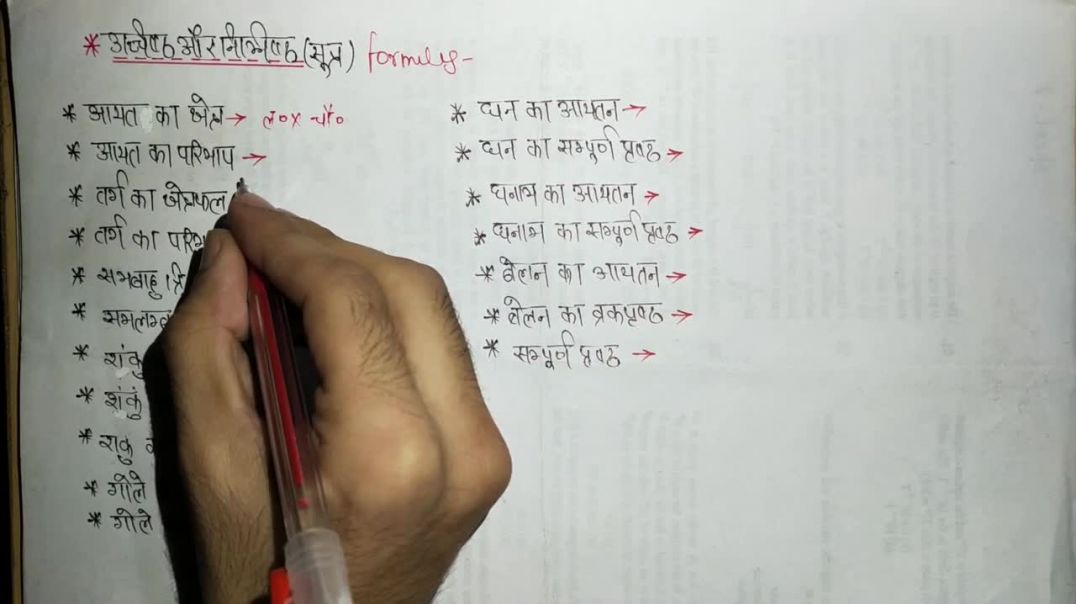 * और (सूत्र) formuly-
* आयत का क्षेत्र → ल०× चौ०
* आयत का परिमाप →
* वर्ग का क्षेत्रफल
* वर्ग का परिमा
* समबाहु त्रि
* समलम्ब
* शंकु
* शंकुं
* शकु
* गोले
* गोले
* घन का आयतन →
* घन का सम्पूर्ण प्रष्ठ →
* घनाभ का आयतन →
* घनाभ का सम्पूर्ण प्रष्ठ →
* बेलन का आयतन →
* बेलन का ब्रकप्रष्ठ →
* सम्पूर्ण प्रष्ठ →